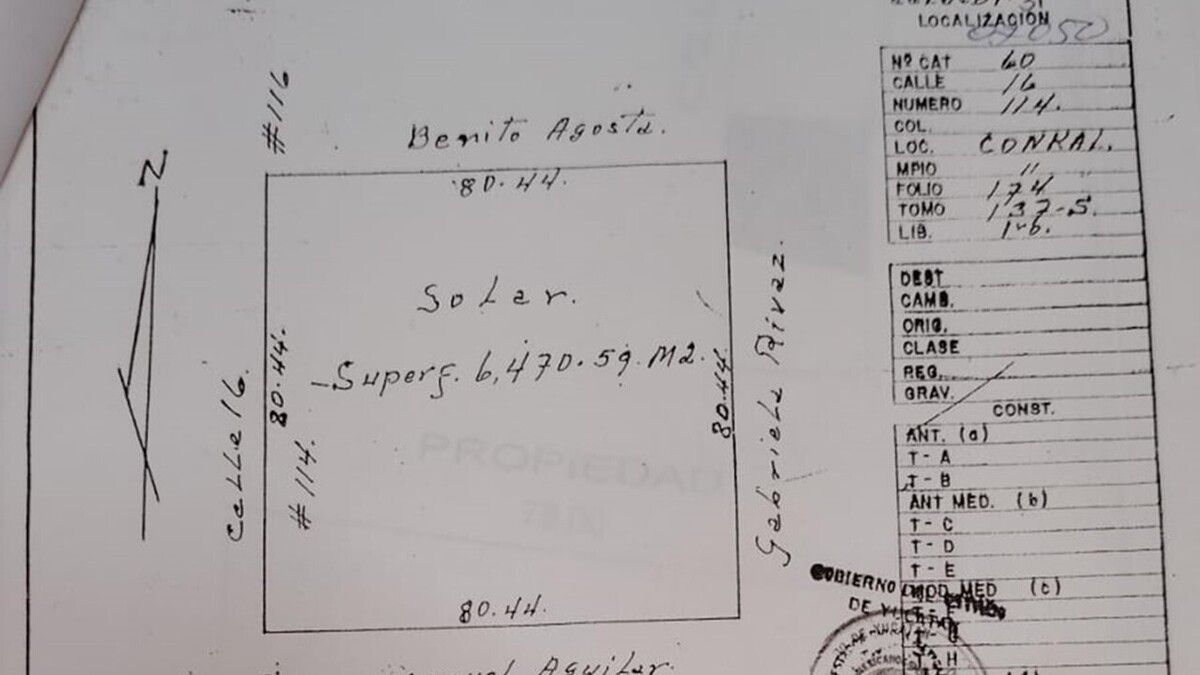 LOCALIZACIÓN
Nº CAT 60
CALLE 16
NUMERO 114.
COL.
LOC. CONKAL.
MPIO "
FOLIO 174
TOMO 137-S.
LIB. 1-6.
DEST
CAMB.
ORIG.
CLASE
REG.
GRAV.
CONST.
ANT. (a)
T - A
T - B
ANT MED. (b)
T - C
T - D
T - E
MOD MED (c)
GOBIERNO
DE YUCATAN
T - H
#116
Benito Agosta.
80.44.
N
Solar.
Superf. 6,470.59. M2.
80.44.
#114.
Calle 16.
80.44.
Gabriela Rivaz.
80.44.
Aguilar.
PROPIEDAD